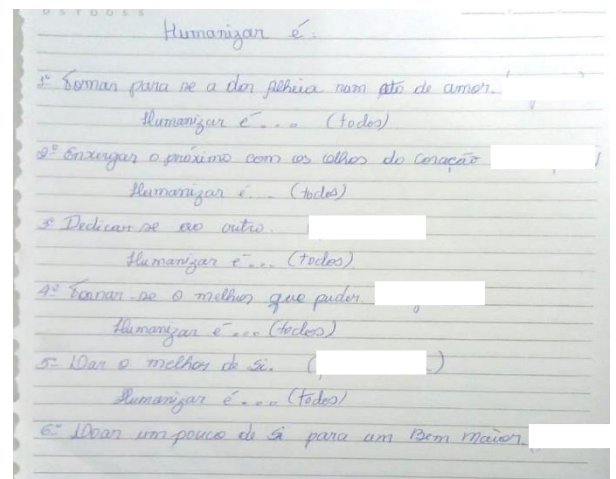 Humanizar é:
1º Tomar para se a dor alheia num ato de amor.
Humanizar é... (todos)
2º Enxergar o próximo com os olhos do coração
Humanizar é... (todos)
3º Dedicar-se ao outro.
Humanizar é... (todos)
4º Tornar-se o melhor que puder
Humanizar é... (todos)
5º Dar o melhor de si. ( .)
Humanizar é... (todos)
6º Doar um pouco de si para um Bem maior.